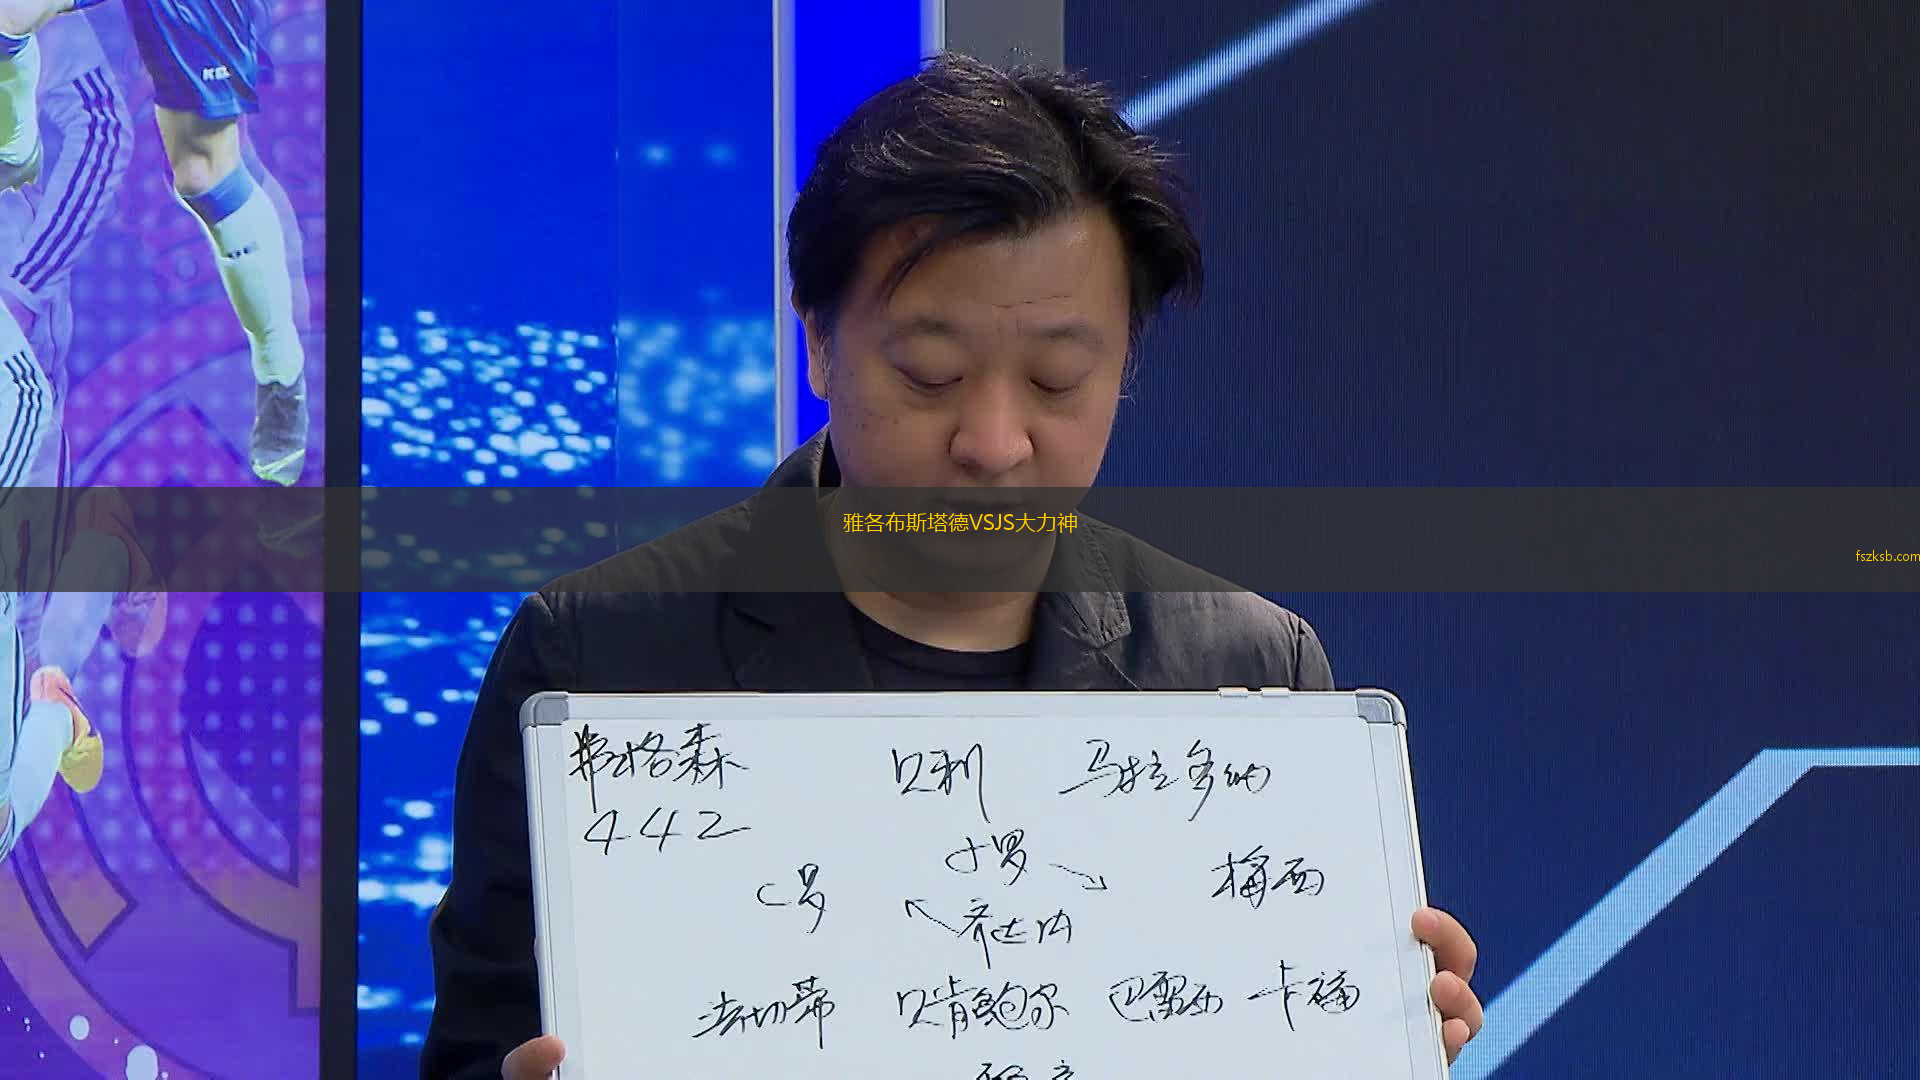 雅各布斯塔德VSJS大力神
fszksb.com
弗格森 贝利 马拉多纳
442
小罗
C罗 梅西
齐达内
法切蒂 贝肯鲍尔 巴雷西 卡福